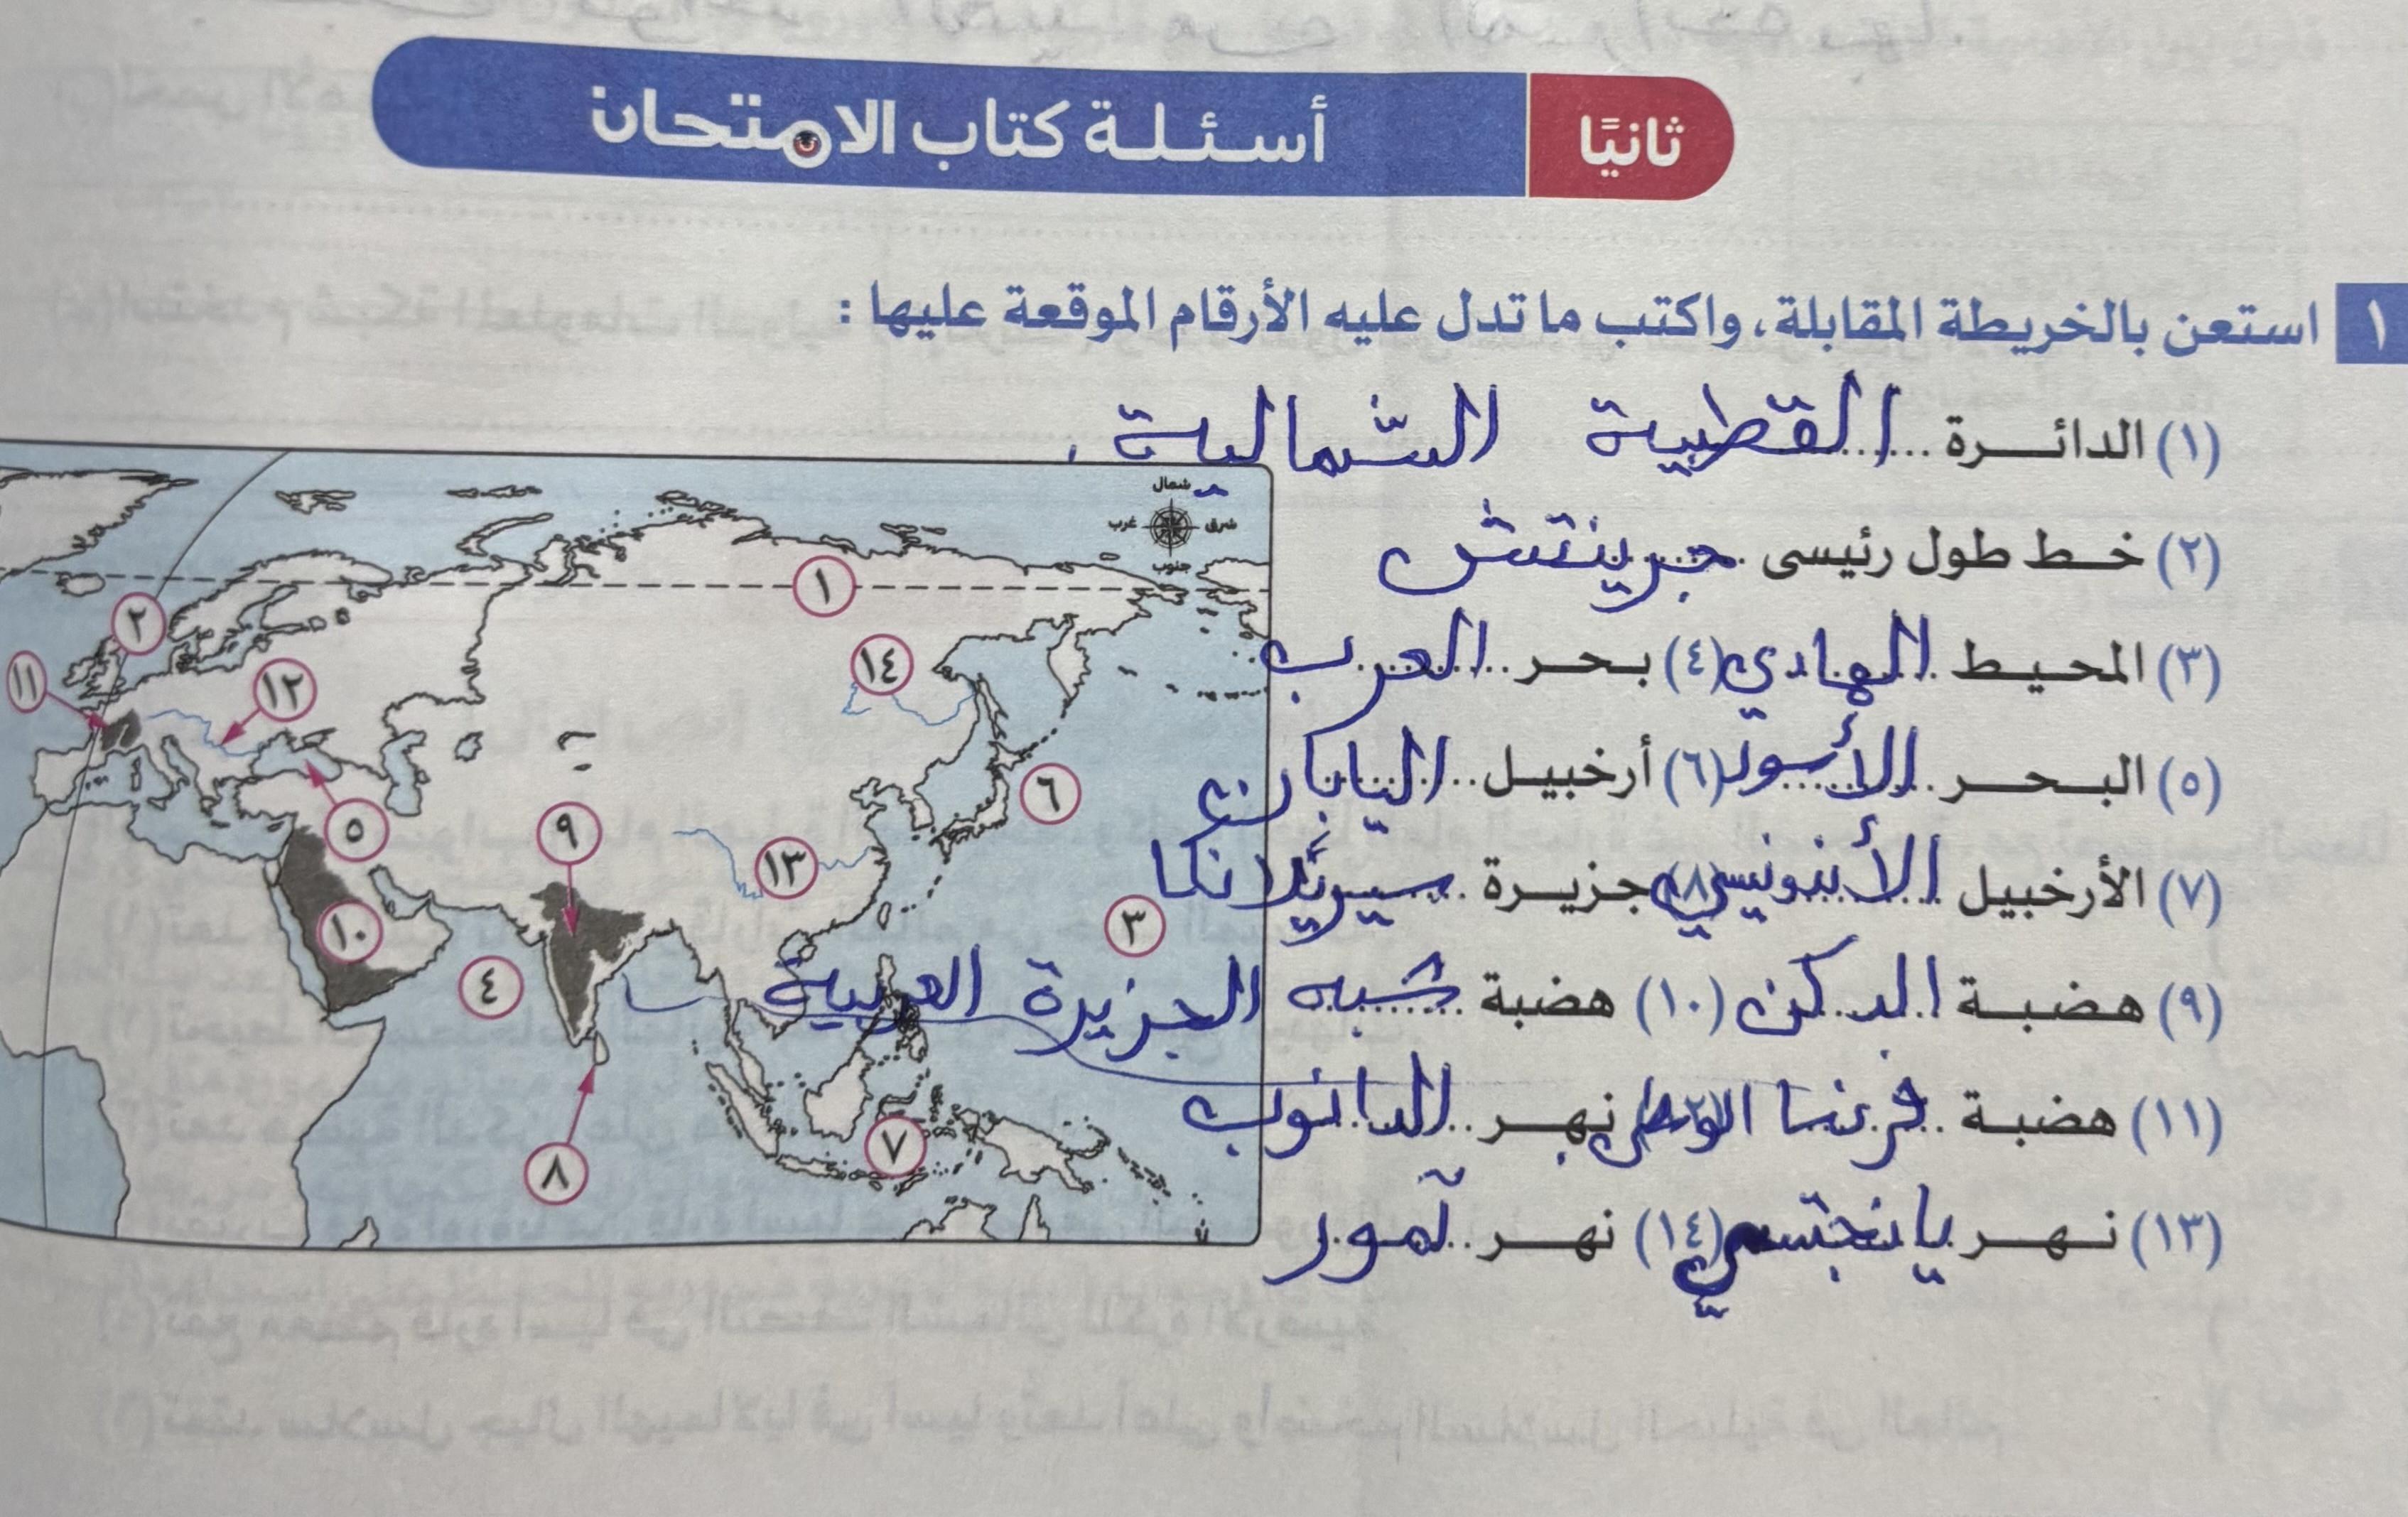 ثانيًا أسئلة كتاب الامتحان
١ استعن بالخريطة المقابلة، واكتب ما تدل عليه الأرقام الموقعة عليها :
(١) الدائرة القطبية الشمالية
(٢) خط طول رئيسى جرينتش
(٣) المحيط الهادي (٤) بحر العرب
(٥) البحر الأسود (٦) أرخبيل اليابان
(٧) الأرخبيل الأندونيسي (٨) جزيرة سيريلانكا
(٩) هضبة الدكن (١٠) هضبة شبه الجزيرة العربية
(١١) هضبة فرنسا الوسطى نهر الدانوب
(١٣) نهر يانجتسي (١٤) نهر آمور
شمال
شرق غرب
جنوب
١
٢
١٤
١١
١٢
٦
٥
٩
١٣
٣
١٠
٤
٧
٨